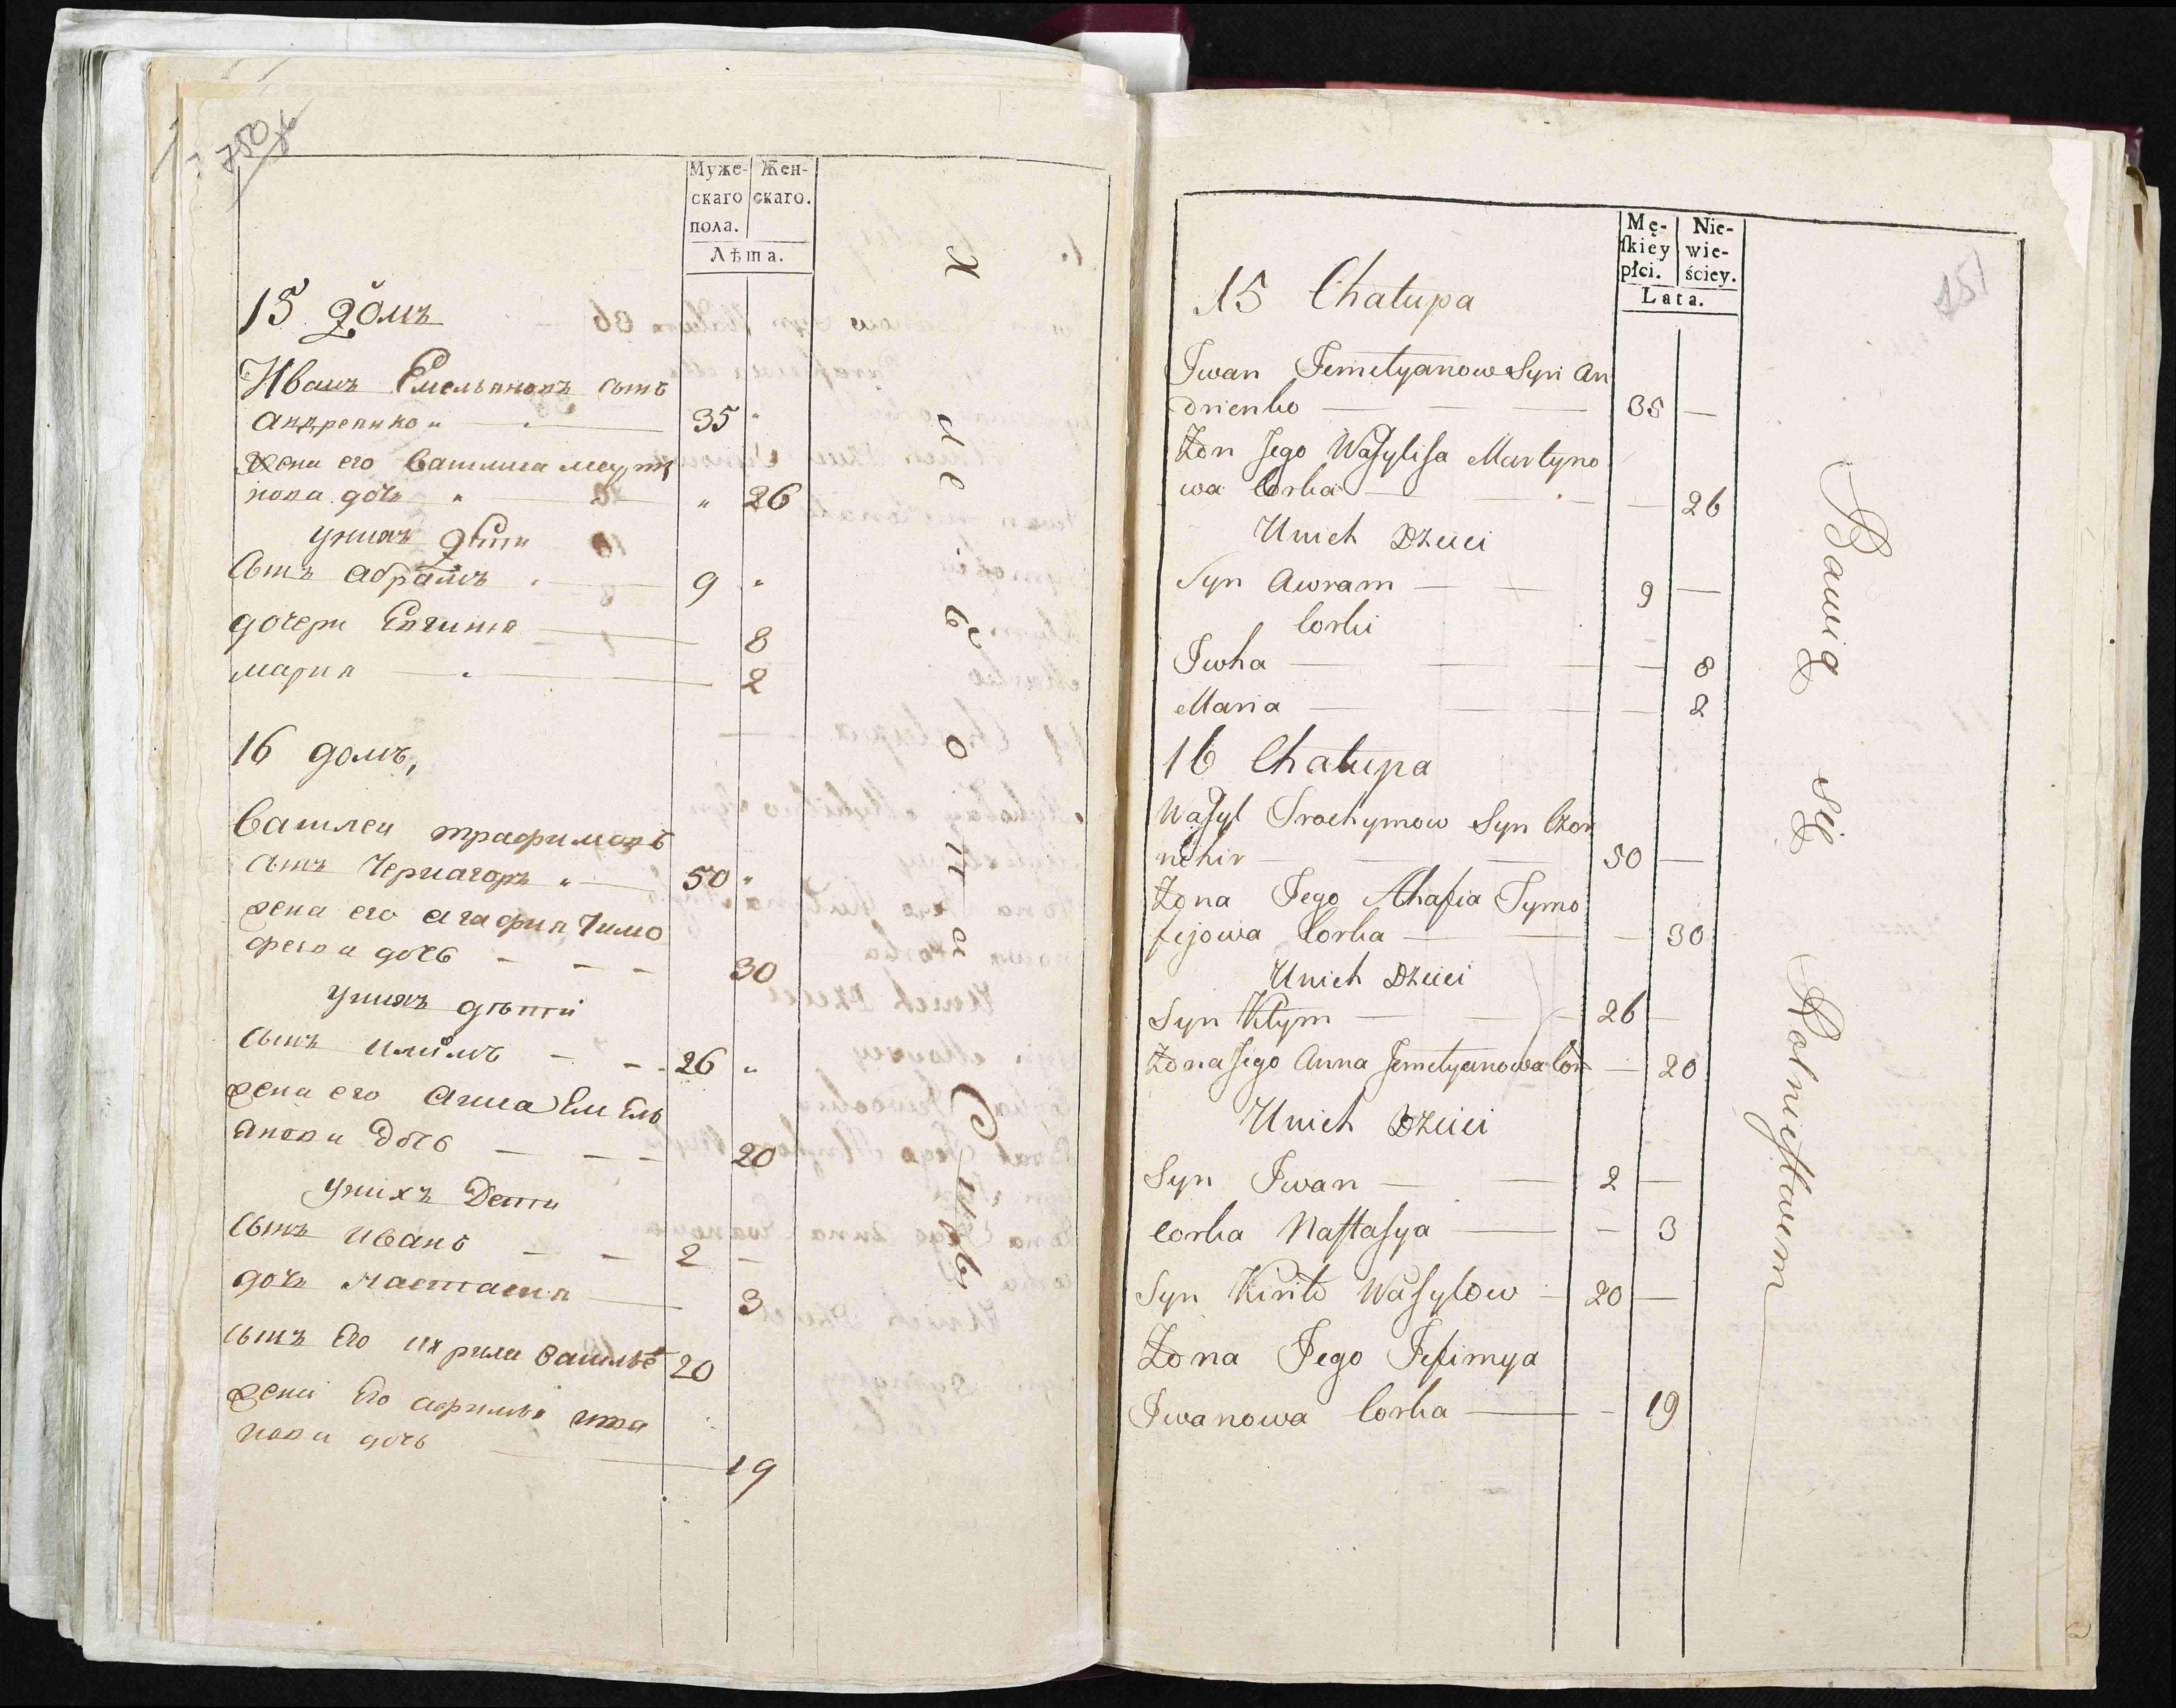 750
Муже-скаго пола.
Жен-скаго.
Лѣта.
15 домъ
Иванъ Емельяновъ сынъ
андреенко „ 35 „
жена его василиса марты
нова дочь „ „ 26
у нихъ дѣти
сынъ абрамъ 9 „
дочери Евгиня 8
мария 2
16 домъ,
василей трафимовъ
сынъ Чернагоръ „ 50 „
жена его агафия тимо
феева дочь 30
у нихъ дѣти
сынъ климъ 26 „
жена его анна Емель
янова дочь 20
у нихъ дети
сынъ иванъ 2
дочь настасия 3
сынъ Его кирила василье 20
жена Его афимья ива
нова дочь 19
хлебопа
151
Mę-skiey płci.
Nie-wie-ściey.
Lata.
15 Chałupa
Iwan Jemelyanow Syn An
drienko — 35 —
Żon Jego Wasylisa Martyno
wa Corka — — 26
Unich Dzieci
Syn Awram — 9 —
Corki
Iwha — — 8
Maria — — 2
16 Chałupa
Wasyl Trochymow Syn Czor
nohir — 50 —
Żona Jego Ahafia Tymo
fijowa Corka — — 30
Unich Dzieci
Syn Kłym — 26 —
Żona Jego Anna Jemelyanowa Cor — 20
Unich Dzieci
Syn Iwan — 2 —
corka Nastasya — — 3
Syn Kiriło Wasylow — 20 —
Żona Jego Jefimya
Iwanowa Corka — — 19
Bawią się Rolnictwem